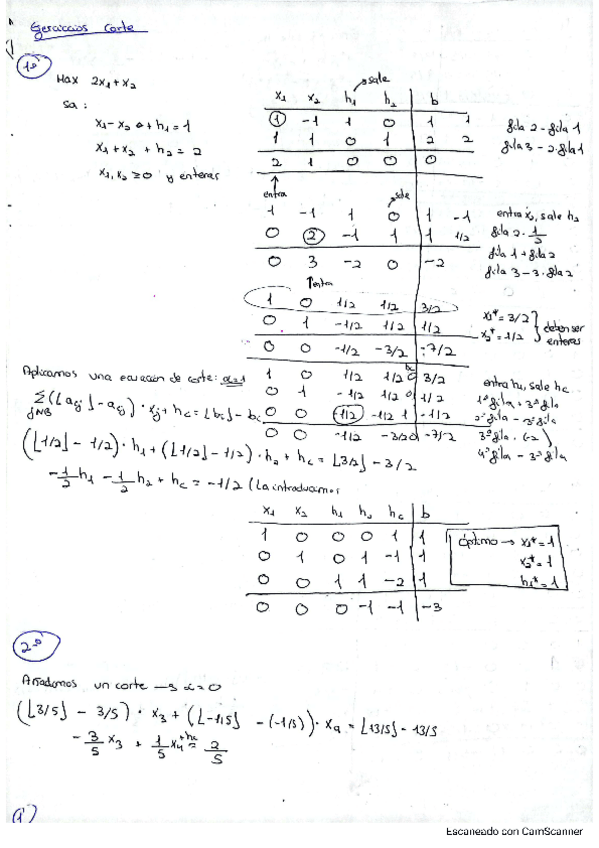 Ejercicios Corte
1º
Max 2x₁+x₂
sa:
x₁-x₂ + h₁ = 1
x₁+x₂ + h₂ = 2
x₁,x₂ ≥0 y enteras
sale
x₁ x₂ h₁ h₂ b
1 -1 1 0 1 1
1 1 0 1 2 2
2 1 0 0 0
fila 2 - fila 1
fila 3 - 2·fila 1
entra
sale
1 -1 1 0 1 -1
0 2 -1 1 1 1/2
0 3 -2 0 -2
entra x₂, sale h₂
fila 2 · 1/2
fila 1 + fila 2
fila 3 - 3·fila 2
entra
1 0 1/2 1/2 3/2
0 1 -1/2 1/2 1/2
0 0 -1/2 -3/2 -7/2
x₁*=3/2
x₂*=1/2
deben ser enteras
Aplicamos una ecuación de corte: α=1
∑ (⌊aᵢⱼ⌋ - aᵢⱼ) · xⱼ + hc = ⌊bᵢ⌋ - bᵢ
jNB
(⌊1/2⌋ - 1/2) · h₁ + (⌊1/2⌋ - 1/2) · h₂ + hc = ⌊3/2⌋ - 3/2
-1/2 h₁ - 1/2 h₂ + hc = -1/2 (La introducimos
hc
1 0 1/2 1/2 0 3/2
0 1 -1/2 1/2 0 1/2
0 0 -1/2 -1/2 1 -1/2
0 0 -1/2 -3/2 0 -7/2
entra h₁, sale hc
1ª fila + 3ª fila
2ª fila - 3ª fila
3ª fila · (-2)
4ª fila - 3ª fila
x₁ x₂ h₁ h₂ hc b
1 0 0 0 1 1
0 1 0 1 -1 1
0 0 1 1 -2 1
0 0 0 -1 -1 -3
óptimo → x₁*=1
x₂*=1
h₁*=1
2º
Añadimos un corte → α=0
(⌊3/5⌋ - 3/5) · x₃ + (⌊-1/5⌋ - (-1/5)) · x₄ = ⌊13/5⌋ - 13/5